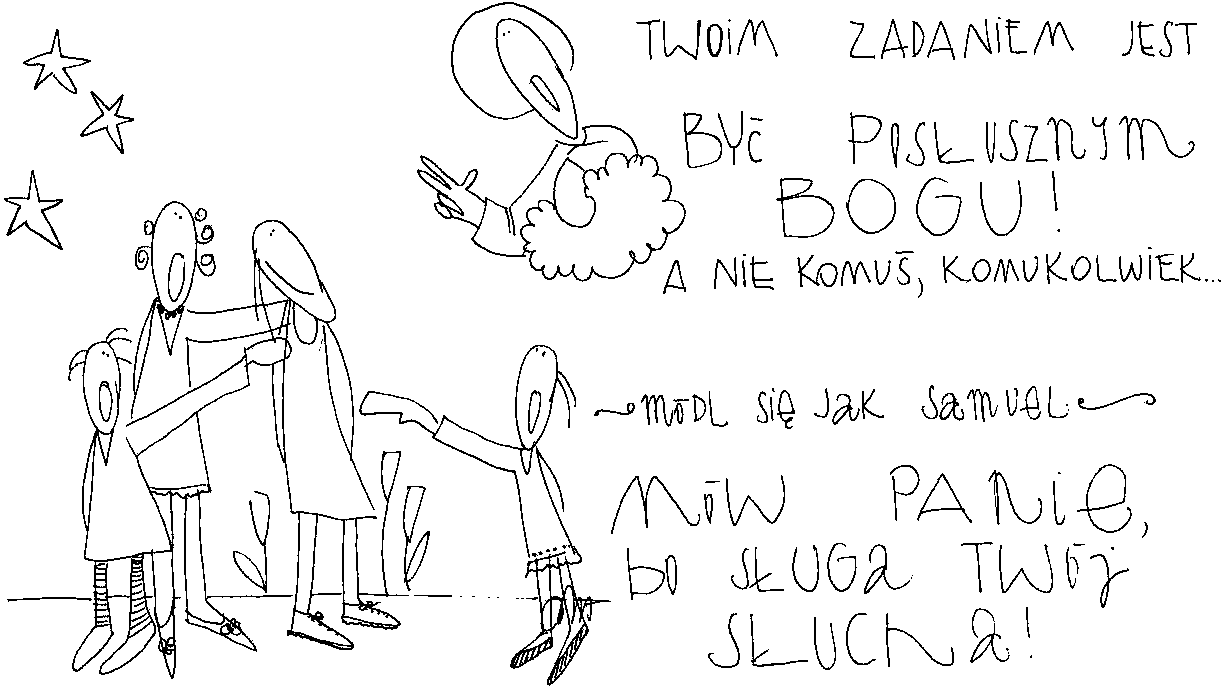 TWOIM ZADANIEM JEST
BYĆ POSŁUSZNYM
BOGU!
A NIE KOMUŚ, KOMUKOLWIEK...
MÓDL SIĘ JAK SAMUEL
MÓW PANIE,
bO SŁUGA TWÓJ
SŁUCHA!